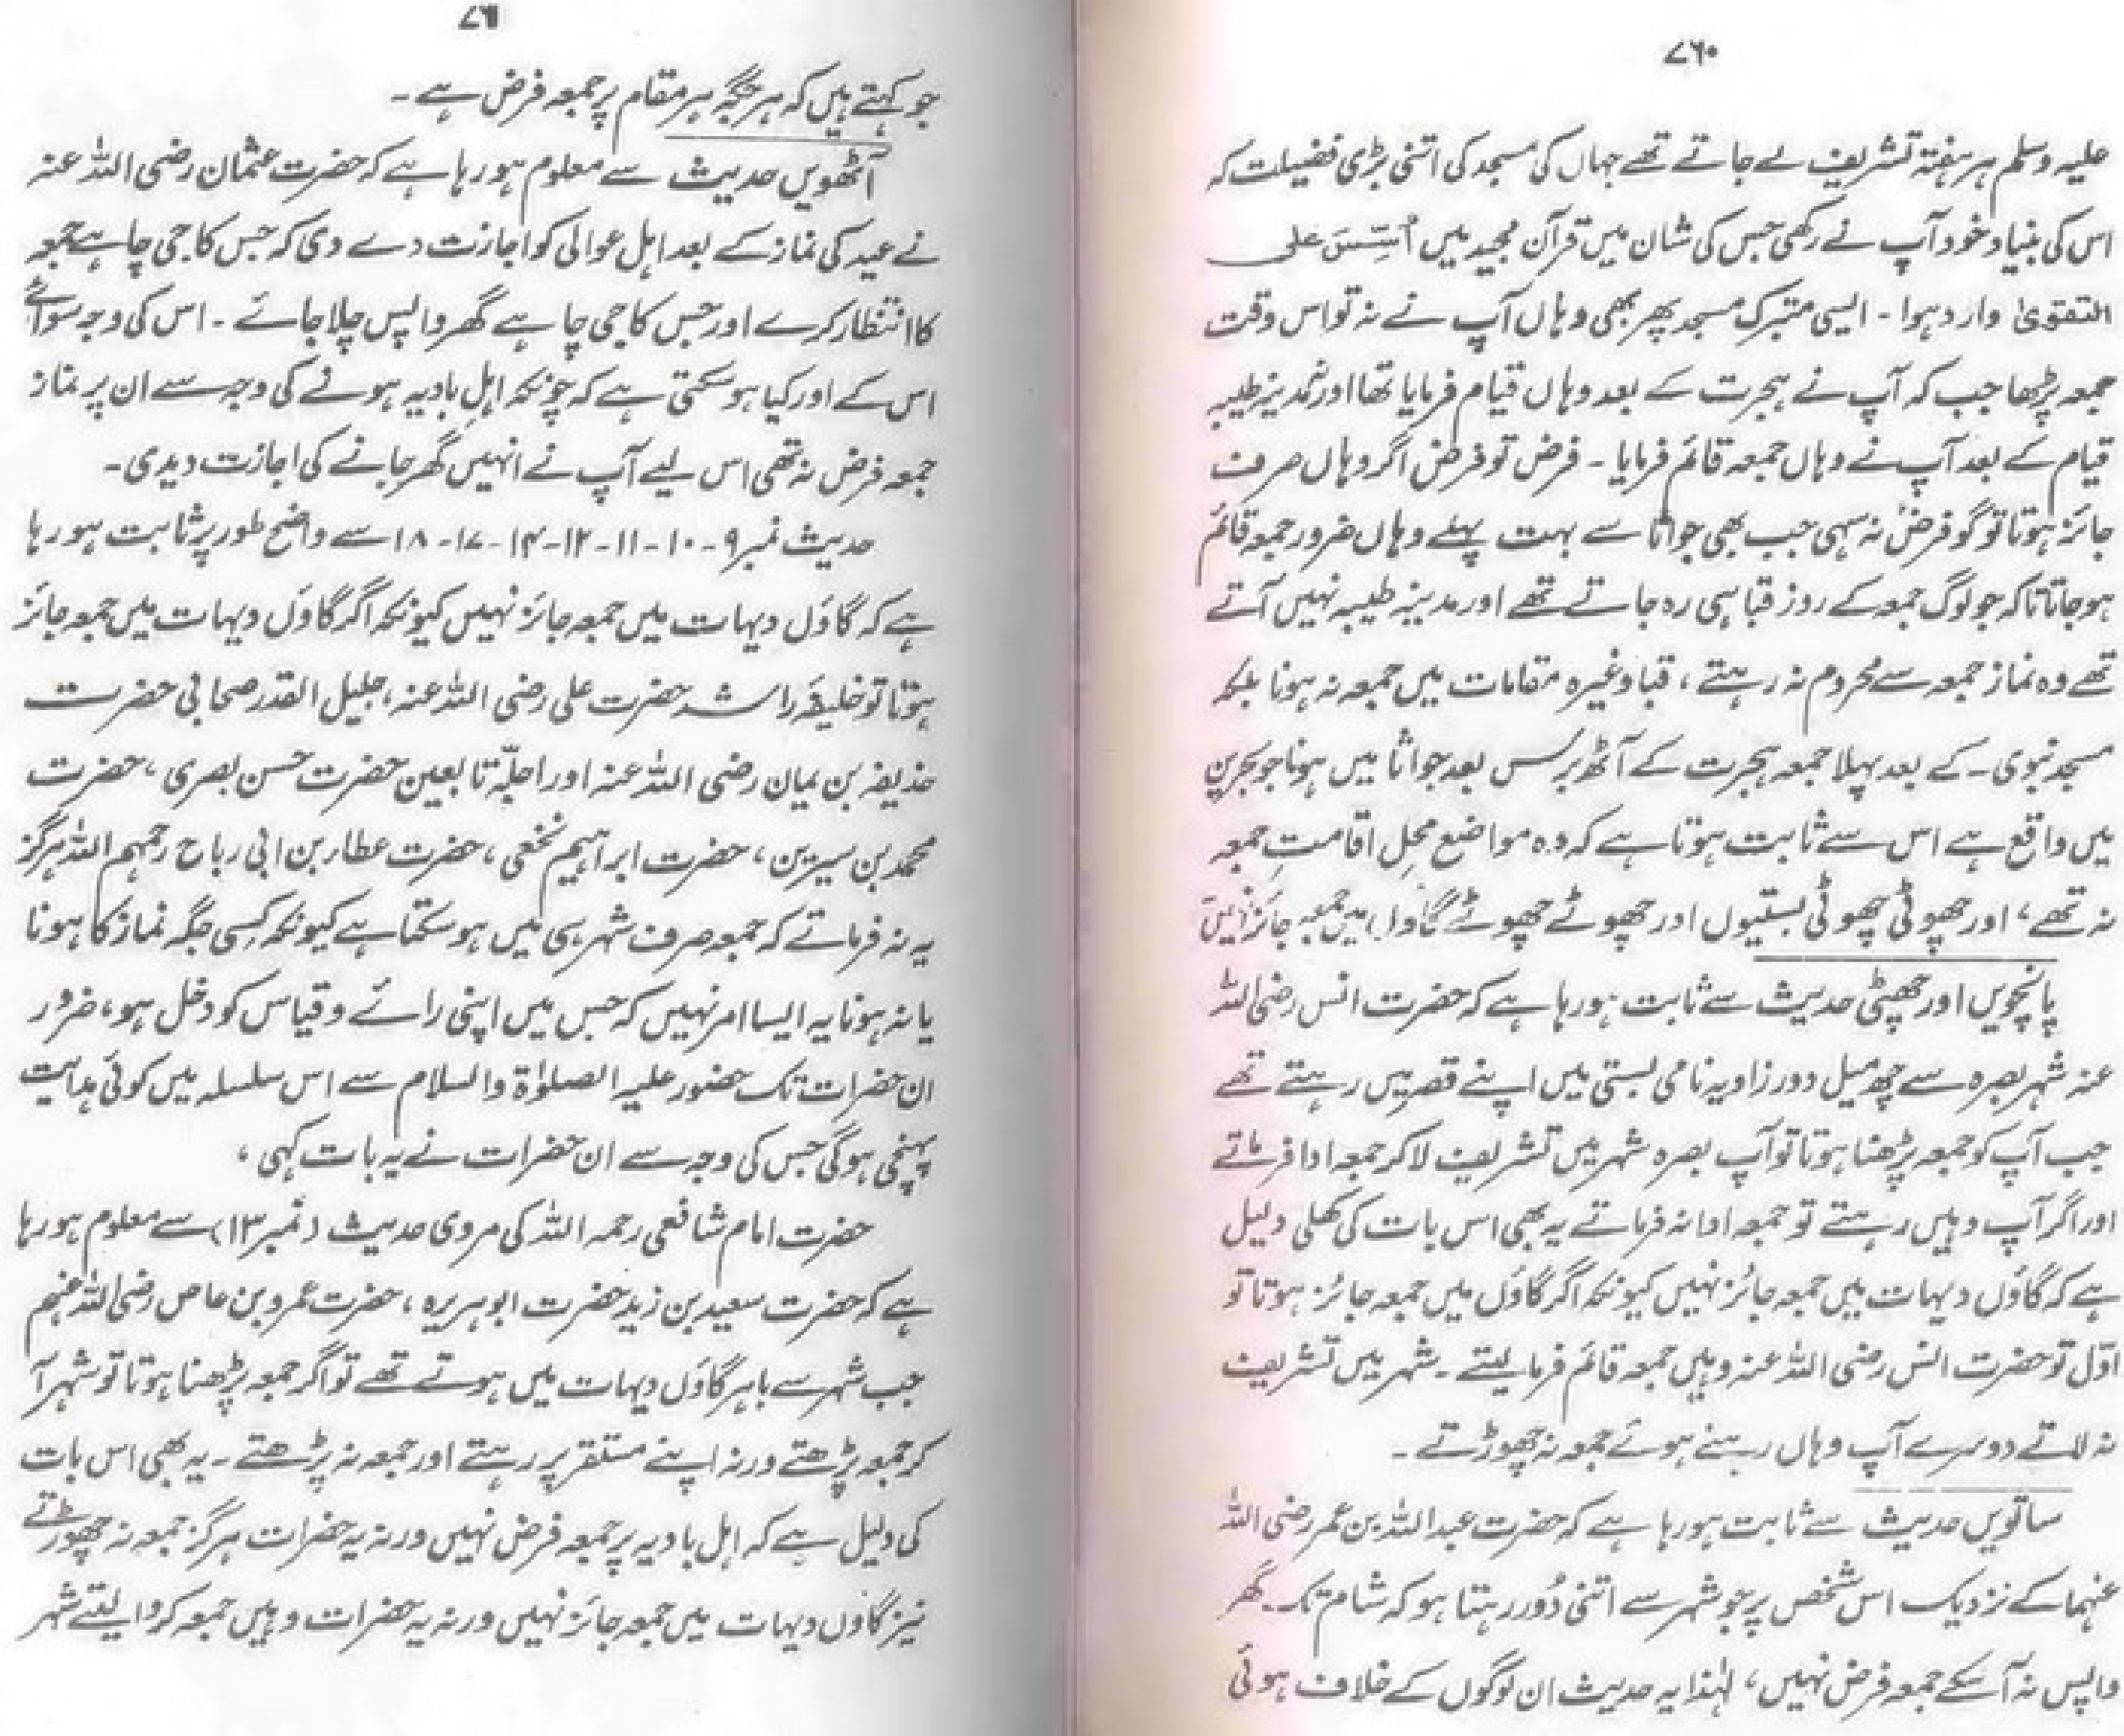 ۷۶۰
علیہ وسلم ہر ہفتہ تشریف لے جاتے تھے جہاں کی مسجد کی اتنی بڑی فضیلت کہ
اس کی بنیاد خود آپ نے رکھی جس کی شان میں قرآن مجید میں اُسِّسَ علی
التقویٰ وارد ہوا - ایسی متبرک مسجد پھر بھی وہاں آپ نے نہ تو اس وقت
جمعہ پڑھا جب کہ آپ نے ہجرت کے بعد وہاں قیام فرمایا تھا اور نہ مدینہ طیبہ
قیام کے بعد آپ نے وہاں جمعہ قائم فرمایا - فرض تو فرض اگر وہاں صرف
جائز ہوتا تو گو فرض نہ سہی جب بھی جواثا سے بہت پہلے وہاں ضرور جمعہ قائم
ہو جاتا تاکہ جو لوگ جمعہ کے روز قبا ہی رہ جاتے تھے اور مدینہ طیبہ نہیں آتے
تھے وہ نماز جمعہ سے محروم نہ رہتے ، قبا وغیرہ مقامات میں جمعہ نہ ہونا بلکہ
مسجد نبوی - کے بعد پہلا جمعہ ہجرت کے آٹھ برس بعد جواثا میں ہونا جو بحرین
میں واقع ہے اس سے ثابت ہوتا ہے کہ وہ مواضع محلِ اقامتِ جمعہ
نہ تھے ، اور چھوٹی چھوٹی بستیوں اور چھوٹے چھوٹے گاؤں میں جمعہ جائز نہیں
پانچویں اور چھٹی حدیث سے ثابت ہو رہا ہے کہ حضرت انس رضی اللہ
عنہ شہر بصرہ سے چھ میل دور زاویہ نامی بستی میں اپنے قصر میں رہتے تھے
جب آپ کو جمعہ پڑھنا ہوتا تو آپ بصرہ شہر میں تشریف لا کر جمعہ ادا فرماتے
اور اگر آپ وہیں رہتے تو جمعہ ادا نہ فرماتے یہ بھی اس بات کی کھلی دلیل
ہے کہ گاؤں دیہات میں جمعہ جائز نہیں کیونکہ اگر گاؤں میں جمعہ جائز ہوتا تو
اوّل تو حضرت انس رضی اللہ عنہ وہیں جمعہ قائم فرما لیتے - شہر میں تشریف
نہ لاتے دوسرے آپ وہاں رہتے ہوئے جمعہ نہ چھوڑتے -
ساتویں حدیث سے ثابت ہو رہا ہے کہ حضرت عبد اللہ بن عمر رضی اللہ
عنہما کے نزدیک اس شخص پر جو شہر سے اتنی دُور رہتا ہو کہ شام تک گھر
واپس نہ آ سکے جمعہ فرض نہیں ، لہٰذا یہ حدیث ان لوگوں کے خلاف ہوئی
جو کہتے ہیں کہ ہر جگہ ہر مقام پر جمعہ فرض ہے -
آٹھویں حدیث سے معلوم ہو رہا ہے کہ حضرت عثمان رضی اللہ عنہ
نے عید کی نماز کے بعد اہل عوالی کو اجازت دے دی کہ جس کا جی چاہے جمعہ
کا انتظار کرے اور جس کا جی چاہے گھر واپس چلا جائے - اس کی وجہ سوائے
اس کے اور کیا ہو سکتی ہے کہ چونکہ اہلِ بادیہ ہونے کی وجہ سے ان پر نماز
جمعہ فرض نہ تھی اس لیے آپ نے انہیں گھر جانے کی اجازت دیدی -
حدیث نمبر ۹-۱۰-۱۱-۱۲-۱۴-۱۷-۱۸ سے واضح طور پر ثابت ہو رہا
ہے کہ گاؤں دیہات میں جمعہ جائز نہیں کیونکہ اگر گاؤں دیہات میں جمعہ جائز
ہوتا تو خلیفۂ راشد حضرت علی رضی اللہ عنہ ، جلیل القدر صحابی حضرت
حذیفہ بن یمان رضی اللہ عنہ اور اجلّہ تابعین حضرت حسن بصری ، حضرت
محمد بن سیرین ، حضرت ابراہیم نخعی ، حضرت عطاء بن ابی رباح رحمہم اللہ ہرگز
یہ نہ فرماتے کہ جمعہ صرف شہر ہی میں ہو سکتا ہے کیونکہ کسی جگہ نماز کا ہونا
یا نہ ہونا یہ ایسا امر نہیں کہ جس میں اپنی رائے و قیاس کو دخل ہو ، ضرور
ان حضرات تک حضور علیہ الصلوٰۃ والسلام سے اس سلسلہ میں کوئی ہدایت
پہنچی ہوگی جس کی وجہ سے ان حضرات نے یہ بات کہی ،
حضرت امام شافعی رحمہ اللہ کی مروی حدیث (نمبر ۱۳) سے معلوم ہو رہا
ہے کہ حضرت سعید بن زید حضرت ابو ہریرہ ، حضرت عمرو بن عاص رضی اللہ عنہم
جب شہر سے باہر گاؤں دیہات میں ہوتے تھے تو اگر جمعہ پڑھنا ہوتا تو شہر آ
کر جمعہ پڑھتے ورنہ اپنے مستقر پر رہتے اور جمعہ نہ پڑھتے - یہ بھی اس بات
کی دلیل ہے کہ اہل بادیہ پر جمعہ فرض نہیں ورنہ یہ حضرات ہرگز جمعہ نہ چھوڑتے
نیز گاؤں دیہات میں جمعہ جائز نہیں ورنہ یہ حضرات وہیں جمعہ کروا لیتے شہر